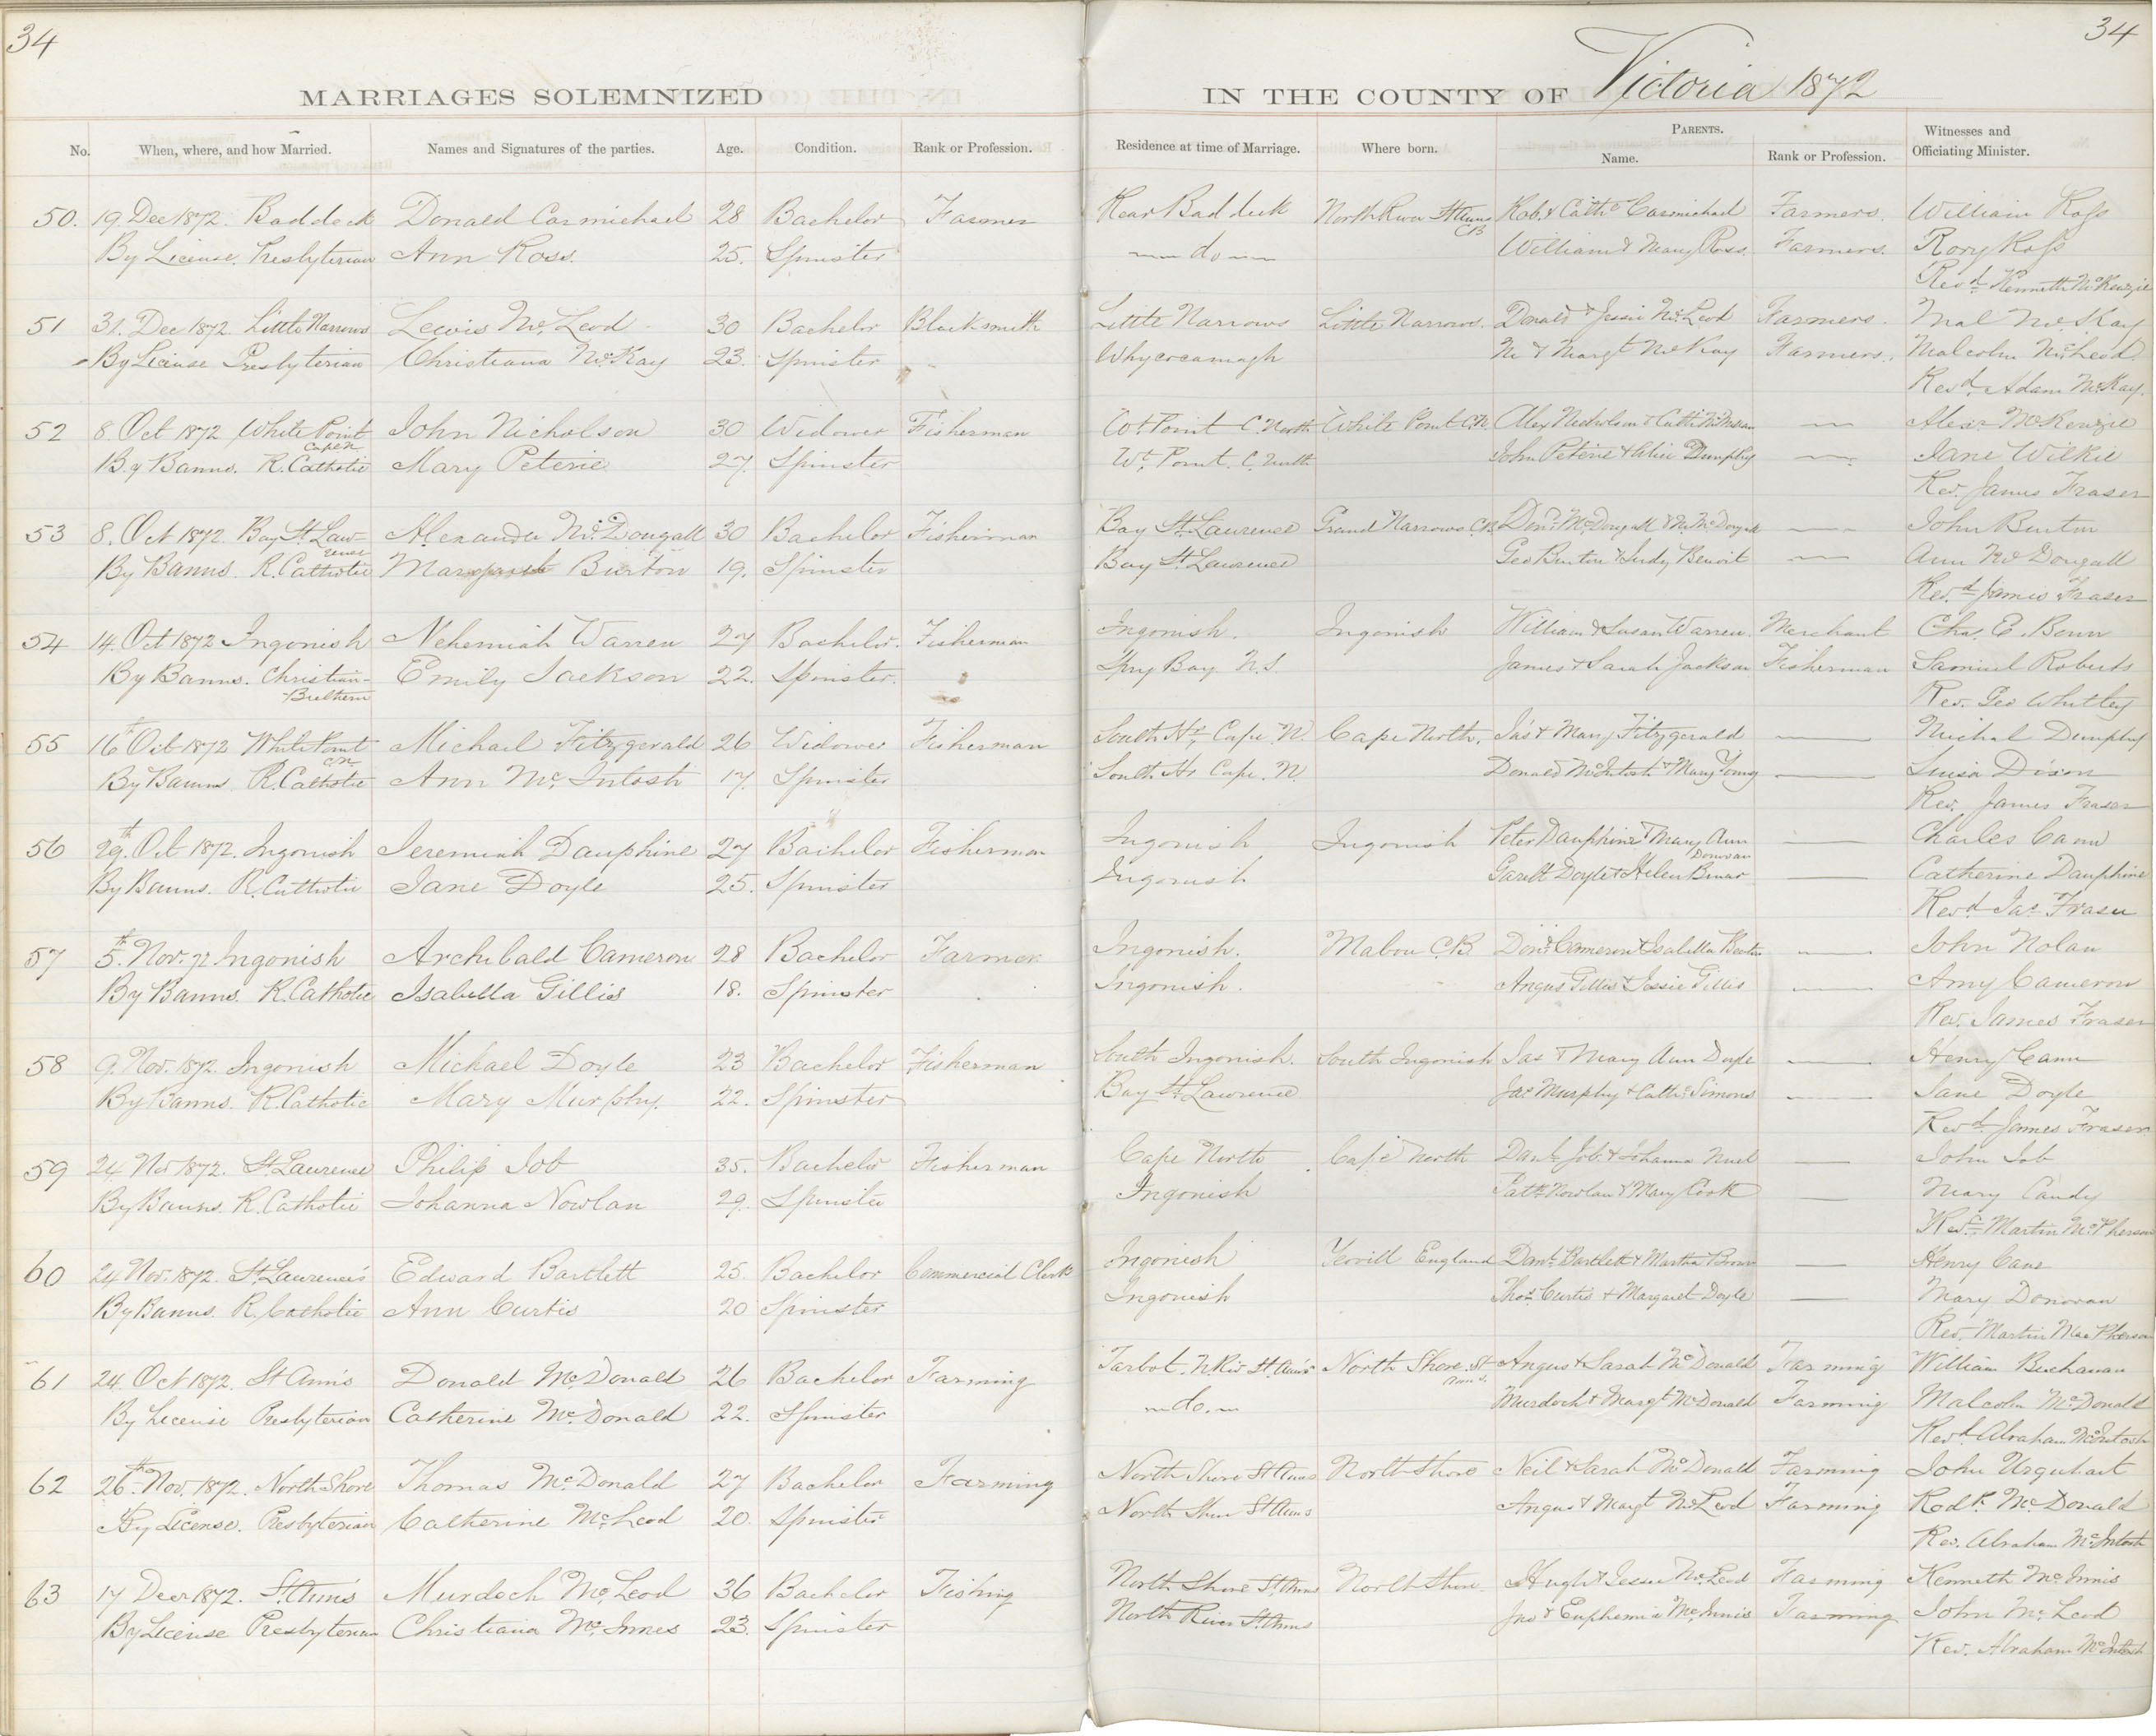 34
34
MARRIAGES SOLEMNIZED
IN THE COUNTY OF Victoria 1872
No. When, where, and how Married. Names and Signatures of the parties. Age. Condition. Rank or Profession. Residence at time of Marriage. Where born. PARENTS. Name. Rank or Profession. Witnesses and Officiating Minister.
50. 19 Dec 1872. Baddeck Donald Carmichael 28 Bachelor Farmer Rear Baddeck North River St Anns CB Rob. & Cathe Carmichael Farmers. William Ross
By License. Presbyterian Ann Ross. 25. Spinster do William & Mary Ross. Farmers. Rory Ross
Revd Kenneth McKenzie
51 31. Dec 1872 Little Narrows Lewis McLeod 30 Bachelor Blacksmith Little Narrows Little Narrows. Donald & Jessie McLeod Farmers. Mal McKay
By License Presbyterian Christiana McKay 23. Spinster Whycocamagh & Margt McKay Farmers. Malcolm McLeod
Revd. Adam McKay.
52 8. Oct 1872 White Point Cape N John Nicholson 30 Widower Fisherman Wt. Point C. North White Point C.N. Alex Nicholson & Cath Alexr McKenzie
By Banns. R. Catholic Mary Peterie 27. Spinster Wt. Point. C. North John Peterie & Dunphy Jane Wilkie
Rev. James Fraser
53 8. Oct 1872. Bay St. Lawrence Alexander McDougall 30 Bachelor Fisherman Bay St. Lawrence Grand Narrows C.B. Dond. McDougall & McDougall John Burton
By Banns. R. Catholic Margaret Burton 19. Spinster Bay St. Lawrence Geo Burton & Judy Benoit Ann McDougall
Revd. James Fraser
54 14. Oct 1872 Ingonish Nehemiah Warren 27 Bachelor. Fisherman Ingonish. Ingonish William & Susan Warren. Merchant Cha. E. Benn
By Banns. Christian Brethern Emily Jackson 22. Spinster. Spry Bay N.S. James & Sarah Jackson Fisherman Samuel Roberts
Rev. Geo Whitley
55 16th Oct 1872 White Point C.N. Michael Fitzgerald 26 Widower Fisherman South Hr. Cape N. Cape North. Jas & Mary Fitzgerald Michal Dunphy
By Banns R. Catholic Ann McIntosh 17. Spinster South Hr Cape. N. Donald McIntosh & Mary Young Luisa Dixon
Rev. James Fraser
56 29th. Oct 1872. Ingonish Jeremiah Dauphine 27 Bachelor Fisherman Ingonish Ingonish Peter Dauphine & Mary Ann Donovan Charles Cann
By Banns. R. Catholic Jane Doyle 25. Spinster Ingonish Garett Doyle & Helen Catherine Dauphine
Revd. Jas Fraser
57 5th. Nov. 72 Ingonish Archibald Cameron 28 Bachelor Farmer Ingonish. Mabou C.B Dond. Cameron & Isabella John Nolan
By Banns. R. Catholic Isabella Gillis 18. Spinster Ingonish. Angus Gillis & Jessie Gillis Amy Cameron
Rev. James Fraser
58 9. Nov. 1872. Ingonish Michael Doyle 23 Bachelor Fisherman South Ingonish. South Ingonish Jas & Mary Ann Doyle Henry Cann
By Banns. R. Catholic Mary Murphy. 22. Spinster Bay St Lawrence Jas Murphy & Cath. Simons Jane Doyle
Revd. James Fraser
59 24. Nov 1872. St. Laurence Philip Job 35. Bachelor Fisherman Cape North Cape North Danl. Job & Johanna John Job
By Banns. R. Catholic Johanna Nowlan 29. Spinster Ingonish Patk Nowlan & Mary Cook Mary Candy
Revd. Martin McPherson
60 24 Nov. 1872. St. Laurence's Edward Bartlett 25. Bachelor Commercial Clerk Ingonish Yeovill England Danl. Bartlett & Martha Brown Henry Cane
By Banns. R. Catholic Ann Curtis 20 Spinster Ingonish Thos. Curtis & Margaret Doyle Mary Donovan
Rev. Martin MacPherson
61 24. Oct 1872. St Ann's Donald McDonald 26 Bachelor Farming Tarbot. N. Riv St. Ann's North Shore. St Ann's. Angus & Sarah McDonald Farming William Buchanan
By License Presbyterian Catherine McDonald 22. Spinster do. Murdoch & Margt McDonald Farming Malcolm McDonald
Revd. Abraham McIntosh
62 26th Nov. 1872. North Shore Thomas McDonald 27 Bachelor Farming North Shore St Anns North Shore Neil & Sarah McDonald Farming John Urquhart
By License. Presbyterian Catherine McLeod 20. Spinster North Shore St Anns Angus & Margt McLeod Farming Rodk. McDonald
Rev. Abraham McIntosh
63 17 Decr 1872. St. Anns Murdoch McLeod 36 Bachelor Fishing North Shore St. Anns North Shore. Hugh & Jessie McLeod Farming Kenneth McInnis
By License Presbyterian Christiana McInnes 23. Spinster North River St. Anns Jno & Euphemia McInnis Farming John McLeod
Rev. Abraham McIntosh